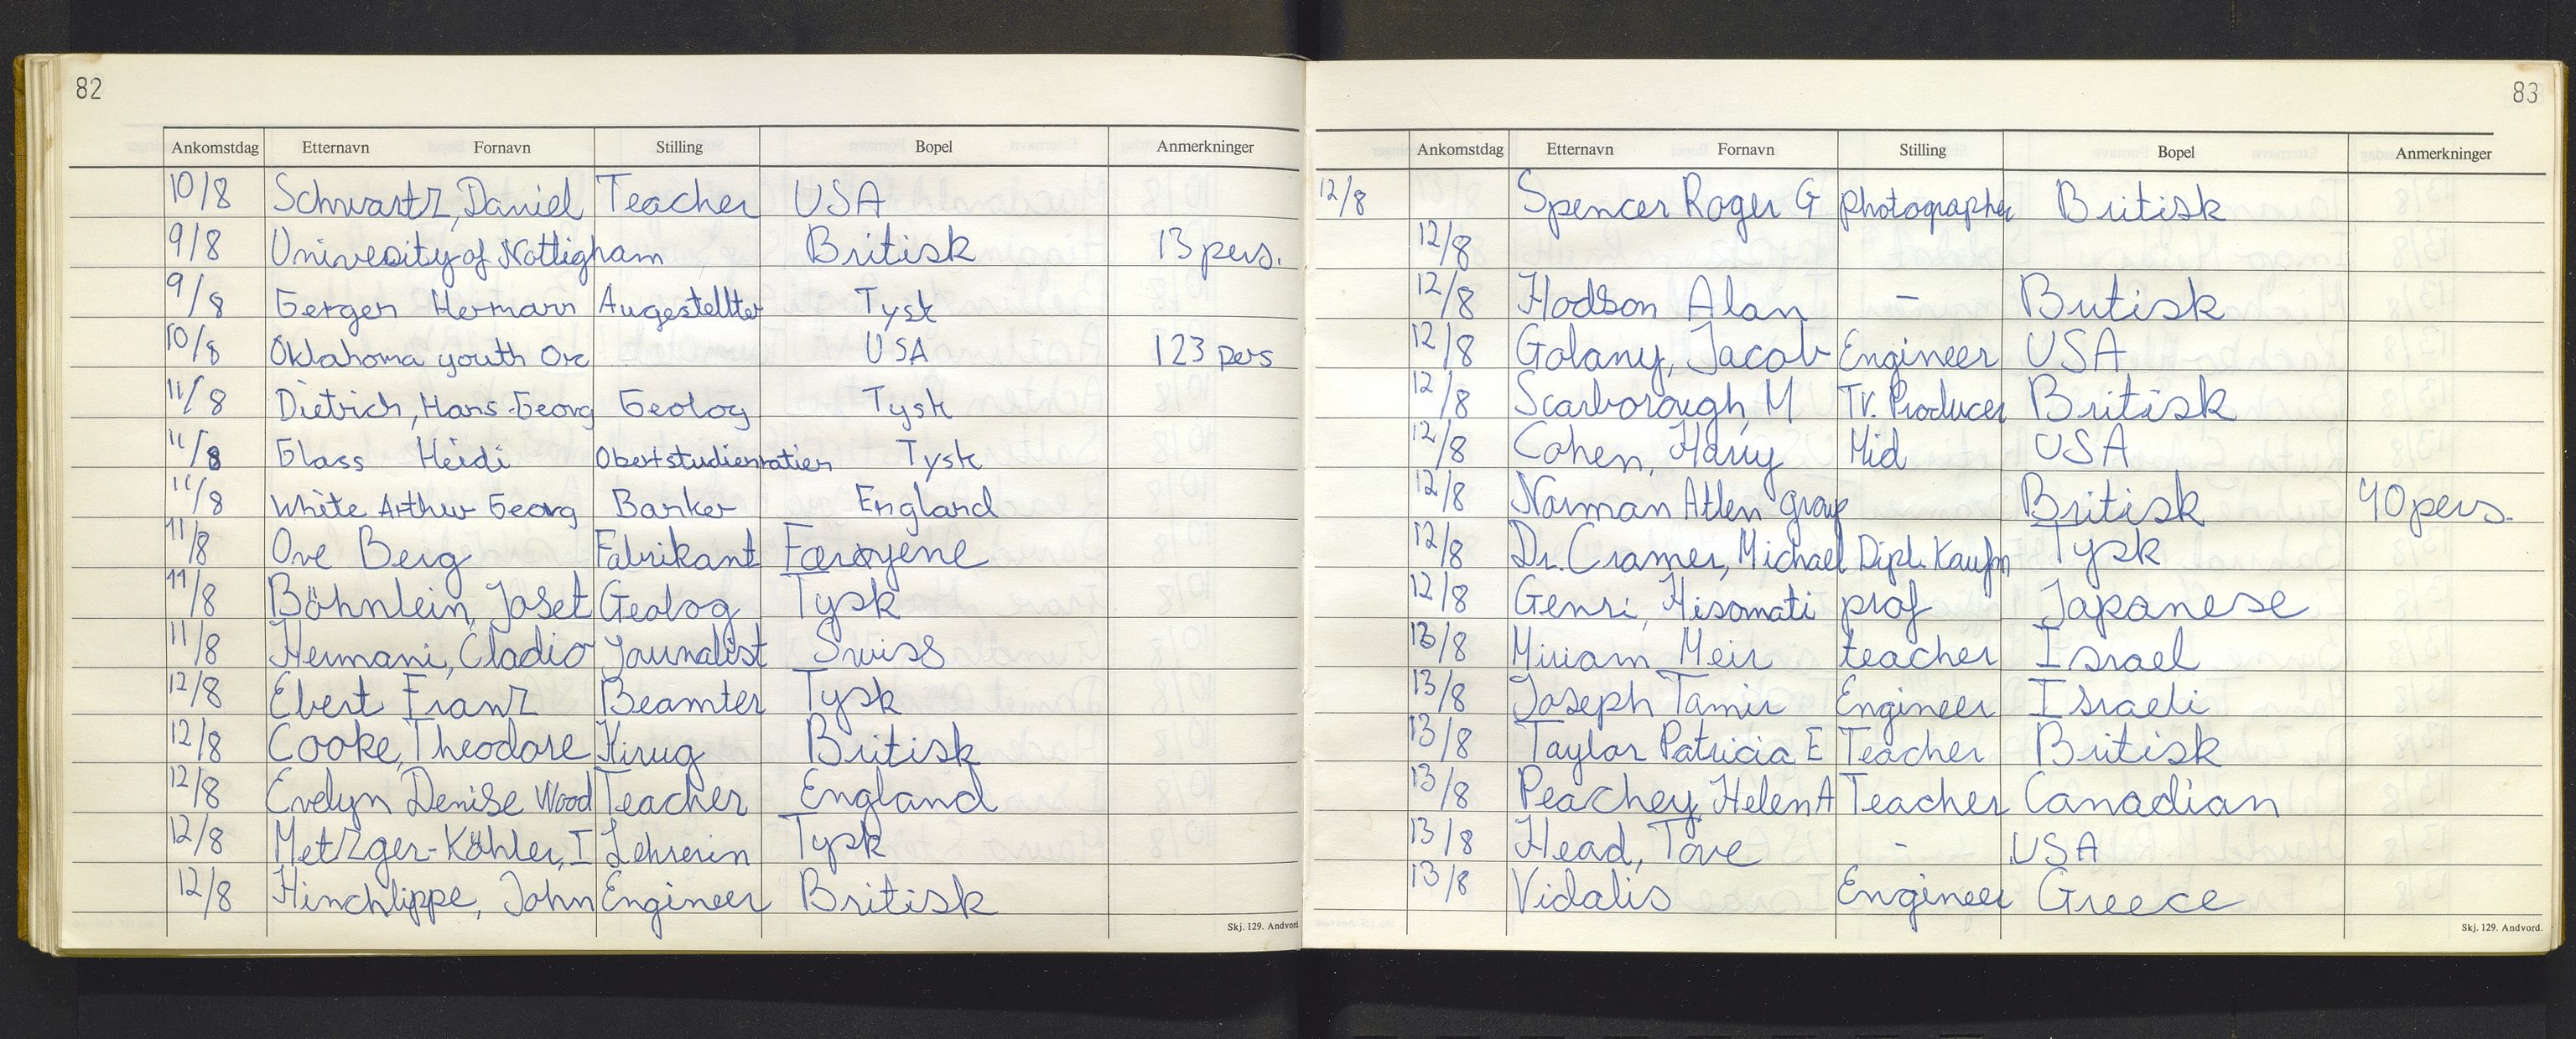 82
Ankomstdag Etternavn Fornavn Stilling Bopel Anmerkninger
10/8 Schwartz, Daniel Teacher USA
9/8 Univesity of Nottigham Britisk 13 pers.
9/8 Gerger Hermann Augestellter Tysk
10/8 Oklahoma youth Orc USA 123 pers
11/8 Dietrich, Hans-Georg Geolog Tysk
11/8 Glass Heidi Obertstudienratien Tysk
11/8 White Arthur Georg Banker England
11/8 Ove Berg Fabrikant Færøyene
11/8 Böhnlein, Joset Geolog Tysk
11/8 Hermani, Cladio Journalist Swiss
12/8 Ebert Franz Beamter Tysk
12/8 Cooke, Theodore Kirug Britisk
12/8 Evelyn Denise Wood Teacher England
12/8 Metzger-Köhler, I Lehrerin Tysk
12/8 Hinchlippe, John Engineer Britisk
Skj. 129. Andvord.
83
Ankomstdag Etternavn Fornavn Stilling Bopel Anmerkninger
12/8 Spencer Roger G photographer Britisk
12/8
12/8 Hodson Alan - Britisk
12/8 Golany, Jacob Engineer USA
12/8 Scarborough, M TV. Producer Britisk
12/8 Cohen, Harry Mid USA
12/8 Norman Atlen group Britisk 40 pers.
12/8 Dr. Cramer, Michael Dipl. Kaufm Tysk
12/8 Genri, Hisomati prof Japanese
13/8 Miriam Meir teacher Israel
13/8 Joseph Tamir Engineer Israeli
13/8 Taylor Patricia E Teacher Britisk
13/8 Peachey, Helen A Teacher Canadian
13/8 Head, Tove - USA
13/8 Vidalis Engineer Greece
Skj. 129. Andvord.